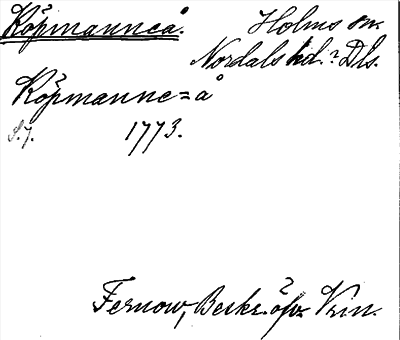 Köpmanneå. Holms sn.
Nordals hd.? Dls.
Köpmanne=å
S.7. 1773.
Fernow, Beskr. öfv. Vrm.